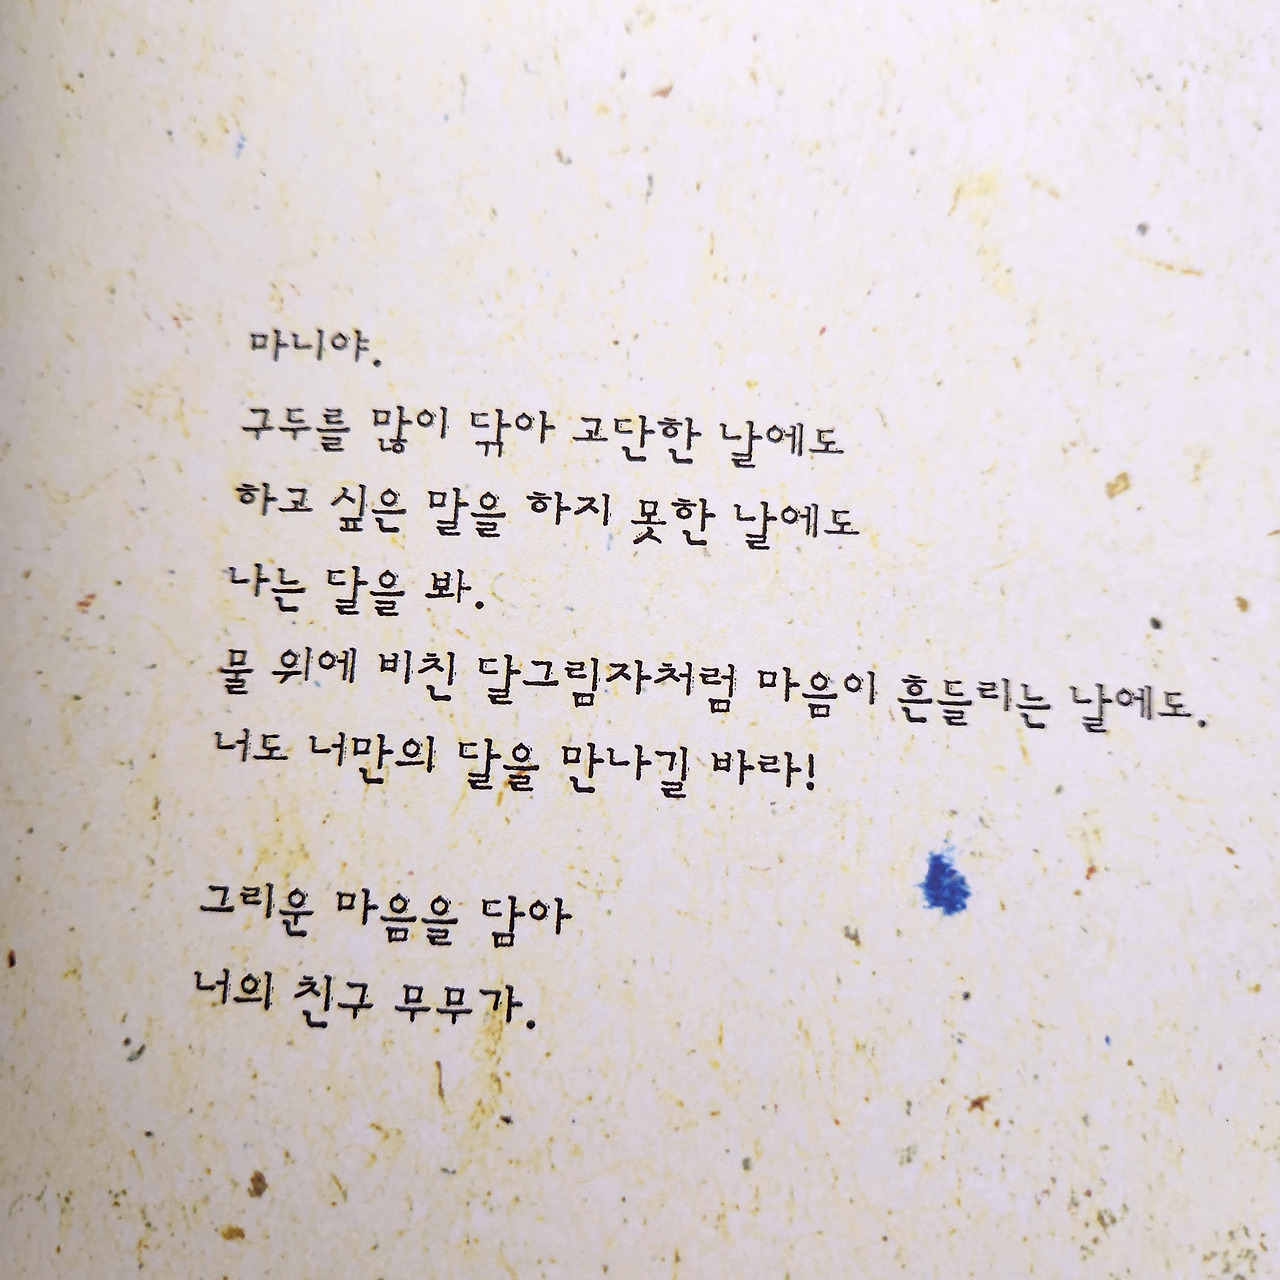 마니야.
구두를 많이 닦아 고단한 날에도
하고 싶은 말을 하지 못한 날에도
나는 달을 봐.
물 위에 비친 달그림자처럼 마음이 흔들리는 날에도.
너도 너만의 달을 만나길 바라!
그리운 마음을 담아
너의 친구 무무가.